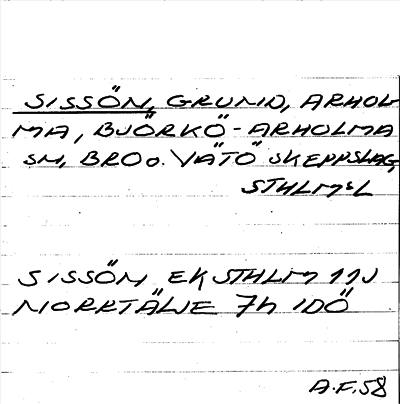 SISSÖN, GRUND, ARHOL
MA, BJÖRKÖ-ARHOLMA
SN, BRO o. VÄTÖ SKEPPSLAG,
STHLMSL
SISSÖN EK STHLM 11J
NORRTÄLJE 7h IDÖ
A.F.58